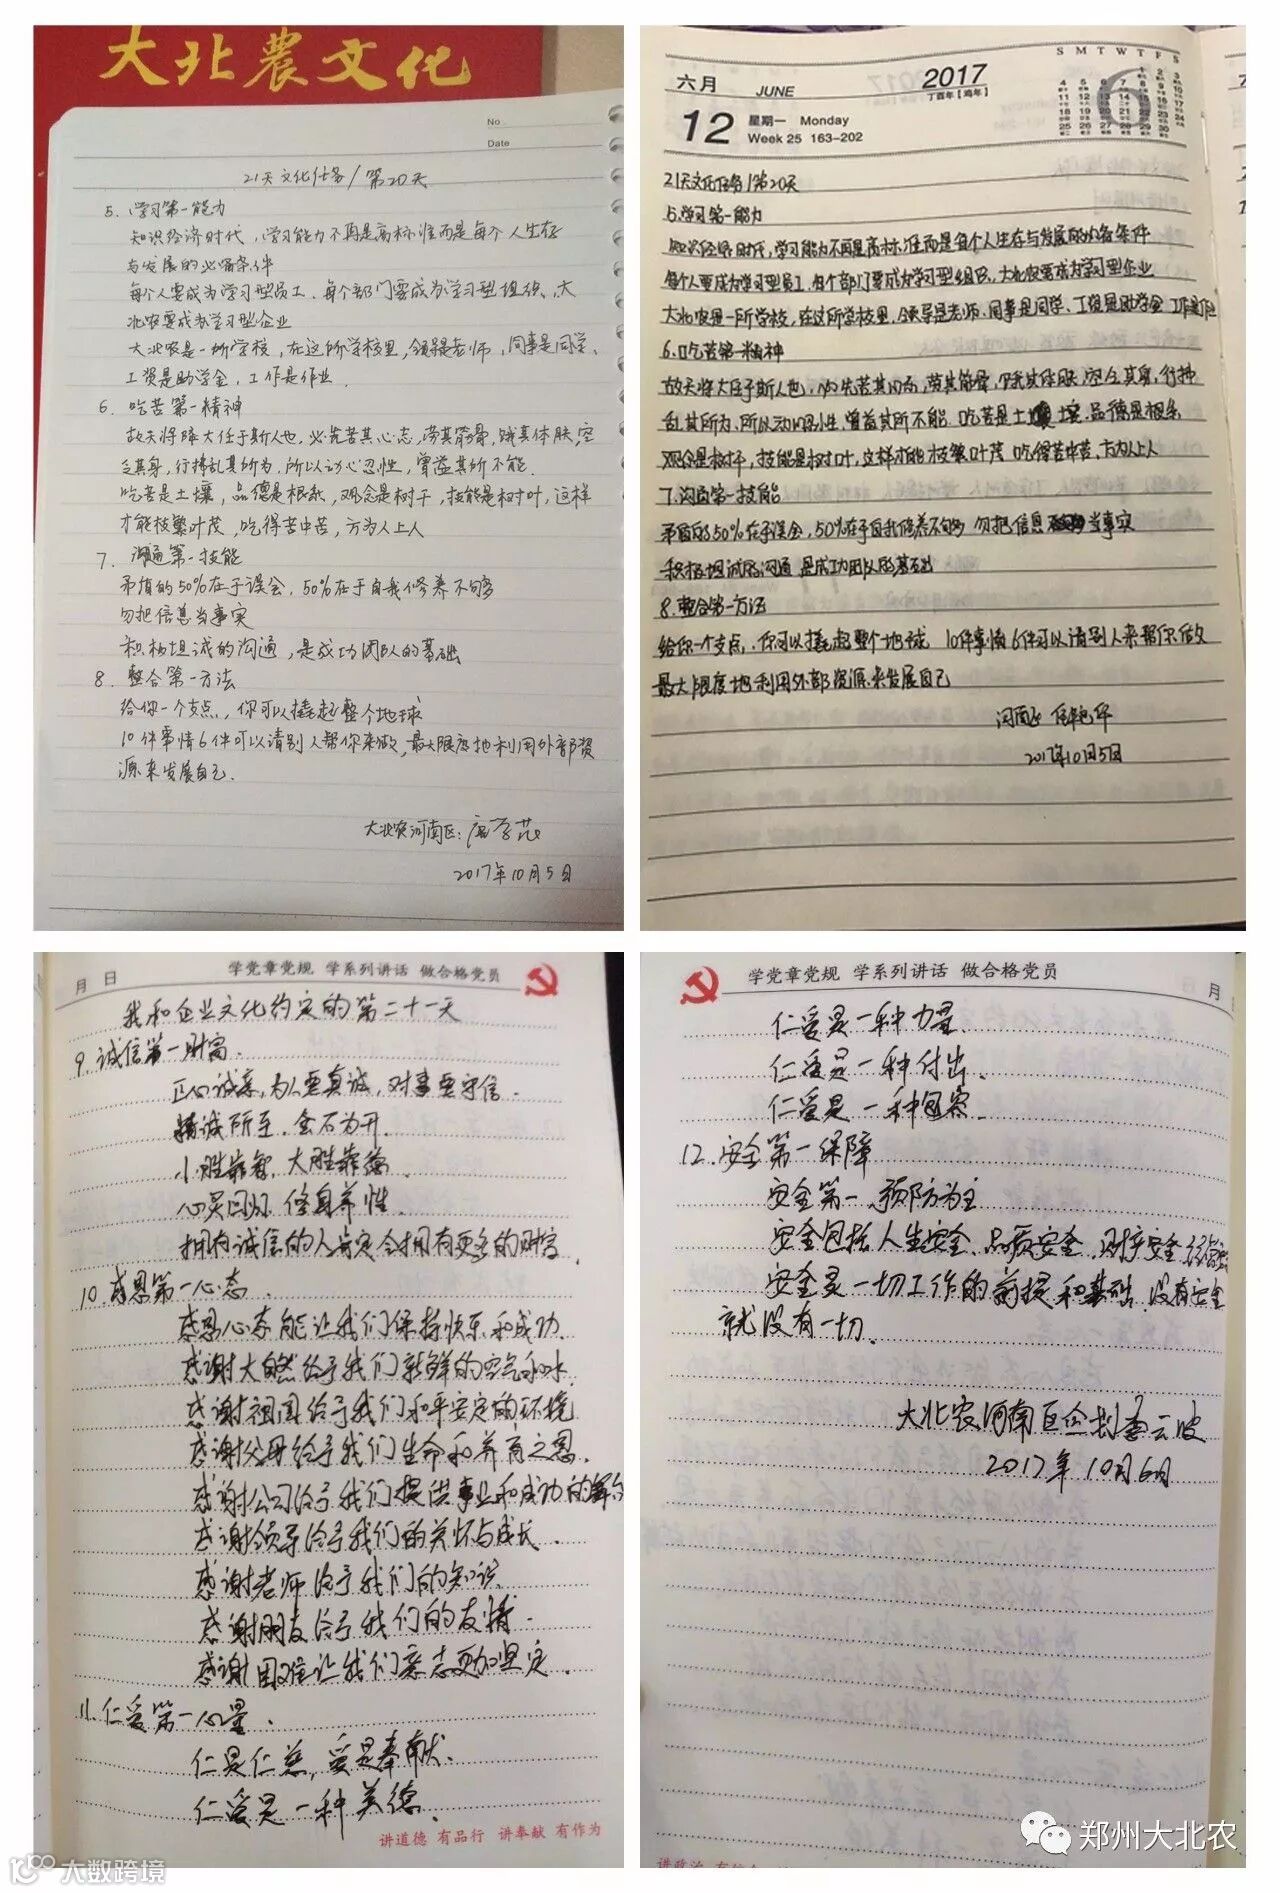 大北農文化
No.
Date
21天文化任务/第20天
5. 学习第一能力
知识经济时代,学习能力不再是高标准而是每个人生存
与发展的必备条件
每个人要成为学习型员工、每个部门要成为学习型组织、大
北农要成为学习型企业
大北农是一所学校,在这所学校里,领导是老师,同事是同学、
工资是助学金,工作是作业.
6. 吃苦第一精神
故天将降大任于斯人也,必先苦其心志,劳其筋骨,饿其体肤,空
乏其身,行拂乱其所为.所以动心忍性,曾益其所不能.
吃苦是土壤,品德是根系,观念是树干,技能是树叶,这样
才能枝繁叶茂,吃得苦中苦,方为人上人
7. 沟通第一技能
矛盾的50%在于误会,50%在于自我修养不够
勿把信息当事实
积极坦诚的沟通,是成功团队的基础
8. 整合第一方法
给你一个支点,你可以撬起整个地球
10件事情6件可以请别人帮你来做,最大限度地利用外部资
源来发展自己.
大北农河南区:
2017年10月5日
六月 JUNE
2017
丁酉年【鸡年】
12 星期一 Monday
Week 25 163-202
S M T W T F S
6
21天文化任务/第20天
5.学习第一能力
知识经济时代,学习能力不再是高标准而是每个人生存与发展的必备条件
每个人要成为学习型员工,每个部门要成为学习型组织,大北农要成为学习型企业
大北农是一所学校,在这所学校里,领导是老师、同事是同学、工资是助学金
6.吃苦第一精神
故天将大任于斯人也,必先苦其心志,劳其筋骨,饿其体肤,空乏其身,行拂
乱其所为,所以动心忍性,曾益其所不能 吃苦是土壤,品德是根系
观念是树干,技能是树叶,这样才能枝繁叶茂 吃得苦中苦,方为人上人
7.沟通第一技能
矛盾的50%在于误会,50%在于自我修养不够 勿把信息当事实
积极坦诚的沟通 是成功团队的基础
8.整合第一方法
给你一个支点,你可以撬起整个地球 10件事情6件可以请别人来帮你做
最大限度地利用外部资源来发展自己
2017年10月5日
月 日 学党章党规 学系列讲话 做合格党员
我和企业文化约定的第二十一天
9.诚信第一财富.
正心诚意,为人要真诚,对事要守信.
精诚所至.金石为开.
小胜靠智,大胜靠德.
心灵回归 修身养性.
拥有诚信的人肯定会拥有更多的财富.
10.感恩第一心态.
感恩心态能让我们保持快乐和成功.
感谢大自然给予我们新鲜的空气和水
感谢祖国给予我们和平安定的环境
感谢父母给予我们生命和养育之恩.
感谢公司给予我们提供事业和成功的舞台
感谢领导给予我们的关怀与成长.
感谢老师给予我们的知识.
感谢朋友给予我们的友情.
感谢困难让我们意志更加坚定.
11.仁爱第一心量.
仁是仁慈,爱是奉献.
仁爱是一种美德.
讲道德 有品行 讲奉献 有作为
学党章党规 学系列讲话 做合格党员
月
仁爱是一种力量.
仁爱是一种付出.
仁爱是一种包容.
12.安全第一保障
安全第一,预防为主
安全包括人生安全、品质安全、财产安全
安全是一切工作的前提和基础,没有安全
就没有一切.
大北农河南区企划李云波
2017年10月6日
郑州大北农
大数跨境